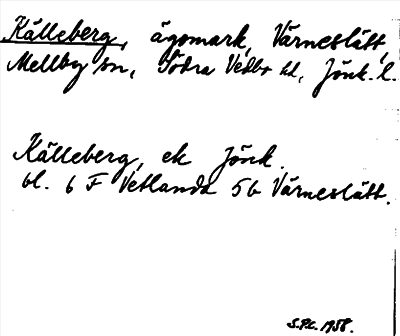 Källeberg, ägomark, Värneslätt,
Mellby sn, Södra Vedbo hd, Jönk. l.
Källeberg, ek Jönk.
bl. 6 F Vetlanda 5b Värneslätt.
S.P.C. 1958.